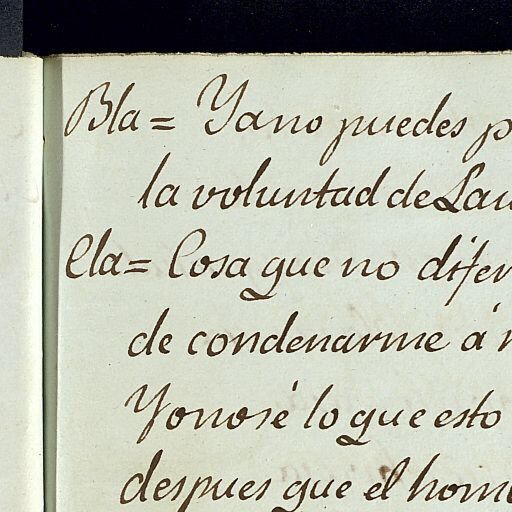 Bla = Ya no puedes p
la voluntad de Lau
Cla = Cosa que no difer
de condenarme á
Yo no sé lo que esto
despues que el hom